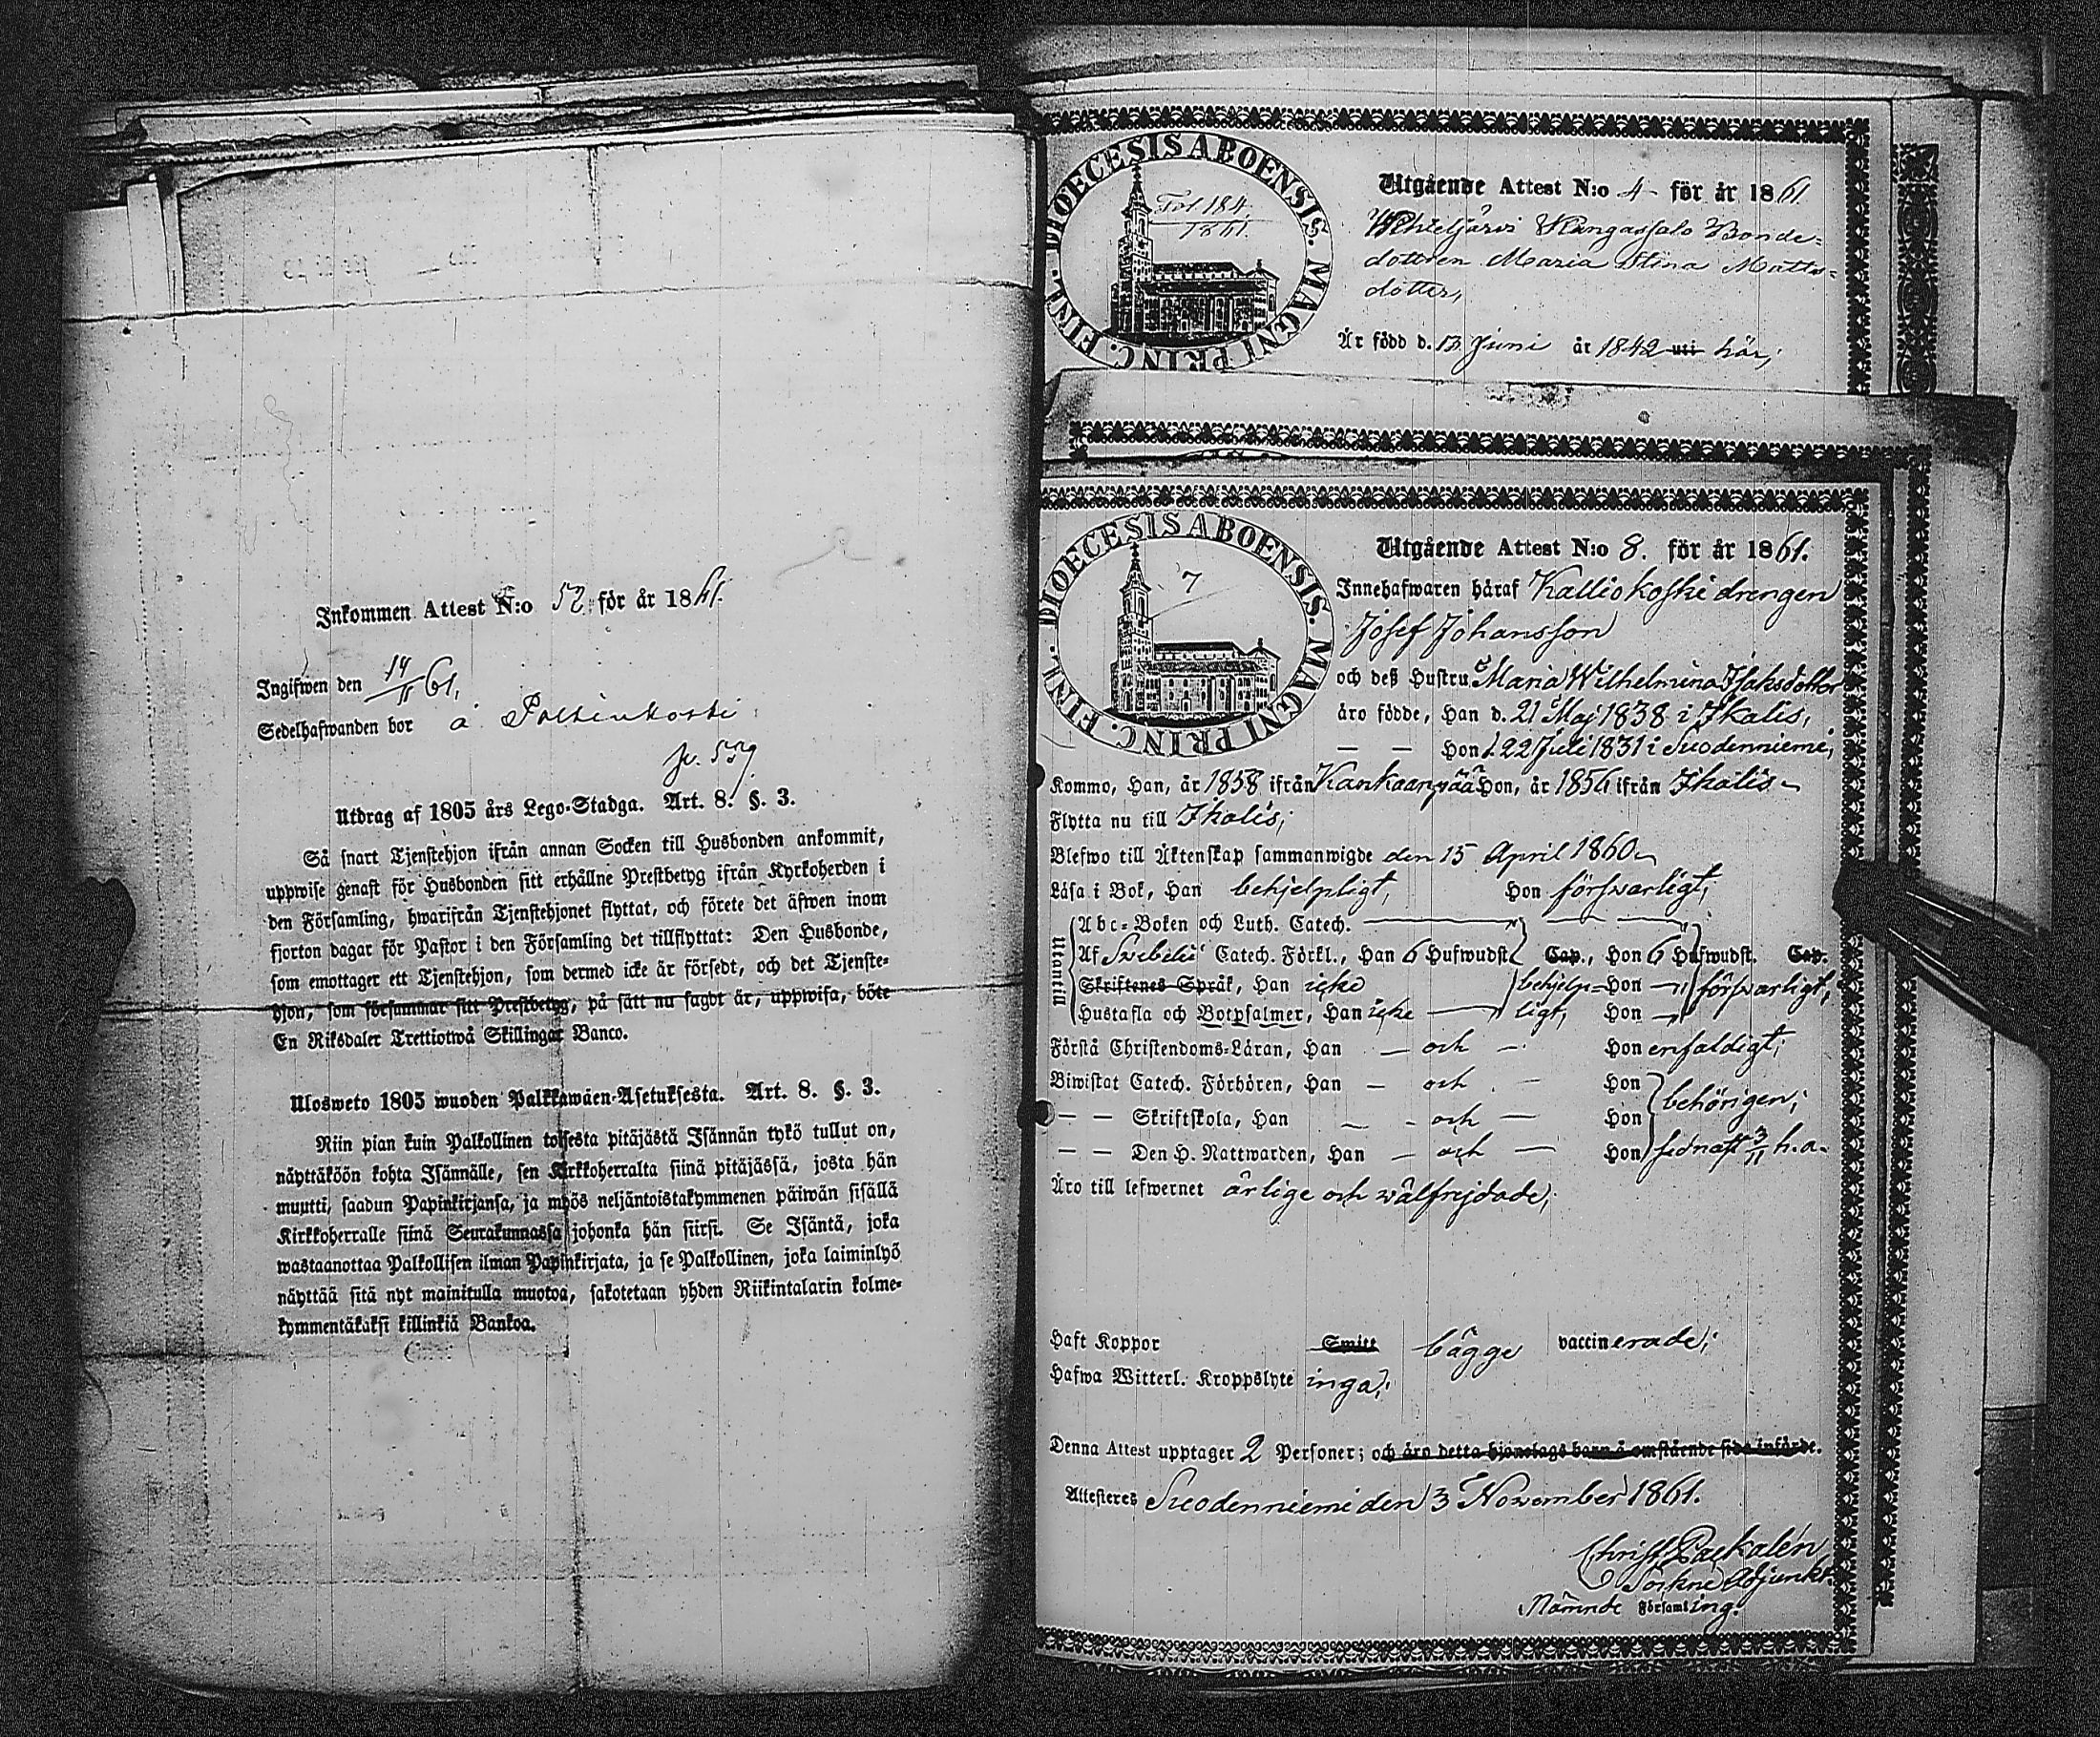 Inkommen Attest N:o 52 för år 1861.
Ingifwen den 14/11 61,
Sedelhafwanden bor å
Utdrag af 1805 års Lego-Stadga. Art. 8. §. 3.
Så snart Tjenstehjon ifrån annan Socken till Husbonden ankommit,
uppwise genast för Husbonden sitt erhållne Prestbetyg ifrån Kyrkoherden i
den Församling, hwarifrån Tjenstehjonet flyttat, och förete det äfwen inom
fjorton dagar för Pastor i den Församling det tillflyttat: Den Husbonde,
som emottager ett Tjenstehjon, som dermed icke är försedt, och det Tjenste-
hjon, som försummar sitt Prestbetyg, på sätt nu sagdt är, uppwisa, böte
En Riksdaler Trettiotwå Skillingar Banco.
Ulosweto 1805 wuoden Palkkawäen-Asetuksesta. Art. 8. §. 3.
Niin pian kuin Palkollinen toisesta pitäjästä Isännän tykö tullut on,
näyttäköön kohta Isännälle, sen Kirkkoherralta siinä pitäjässä, josta hän
muutti, saadun Papinkirjansa, ja myös neljäntoistakymmenen päiwän sisällä
Kirkkoherralle siinä Seurakunnassa johonka hän siirsi. Se Isäntä, joka
wastaanottaa Palkollisen ilman Papinkirjata, ja se Palkollinen, joka laiminlyö
näyttää sitä nyt mainitulla muotoa, sakotetaan yhden Riikintalarin kolme-
kymmentäkaksi killinkiä Bankoa.
DIOECESIS ABOENSIS. MAGNI PRINC. FINL.
Fol 184
Utgående Attest N:o 4 för år 1861
Kangassalo Bonde-
dottren Maria Stina Matts-
dotter,
Är född d. 13 Juni år 1842 uti här;
DIOECESIS ABOENSIS. MAGNI PRINC. FINL.
7
Utgående Attest N:o 8. för år 1861.
Innehafwaren häraf Kalliokoski drengen
Josef Johansson
och deß Hustru Maria Wilhelmina Isaksdotter
äro födde, Han d. 21 Maj 1838 i Ikalis,
— — Hon d. 22 Juli 1831 i Suodenniemi,
Kommo, Han, år 1858 ifrån Kankaanpää Hon, år 1856 ifrån Ikalis
Flytta nu till Ikalis;
Blefwo till Äktenskap sammanwigde den 15 April 1860
Läsa i Bok, Han behjelpligt, Hon förswarligt,
Utantill
Abc-Boken och Luth. Catech.
Af Svebelii Catech. Förkl., Han 6 Hufwudst. Cap., Hon 6 Hufwudst. Cap.
Skriftenes Språk, Han icke behjelp- Hon — förswarligt,
Hustafla och Botpsalmer, Han icke — ligt, Hon —
Förstå Christendoms-Läran, Han — och — Hon enfaldigt;
Biwistat Catech. Förhören, Han — och — Hon
behörigen;
— — Skriftskola, Han — och — Hon
— — Den H. Nattwarden, Han — och — Hon sednast 3/11 h. a.
Äro till lefwernet ärlige och wälfrejdade;
Haft Koppor Smitt bägge vaccinerade;
Hafwa Witterl. Kroppslyte inga;
Denna Attest upptager 2 Personer; och äro detta hjonelags barn å omstående sida införde.
Attesteras Suodenniemi den 3 November 1861.
Christ. Packalén
Sockne Adjunkt
Nämnde Församling.